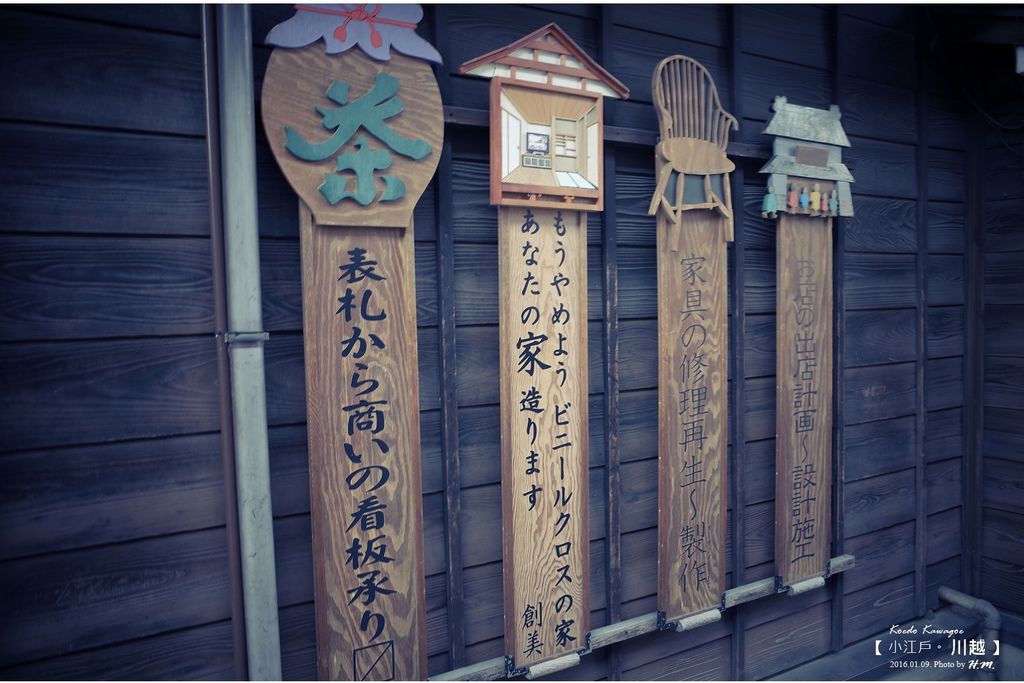 茶
表札から商いの看板承り〼
もうやめよう ビニールクロスの家
あなたの家造ります 創美
家具の修理再生~製作
お店の出店計画~設計施工
Koedo Kawagoe
【 小江戶。川越 】
2016.01.09. Photo by H.M.